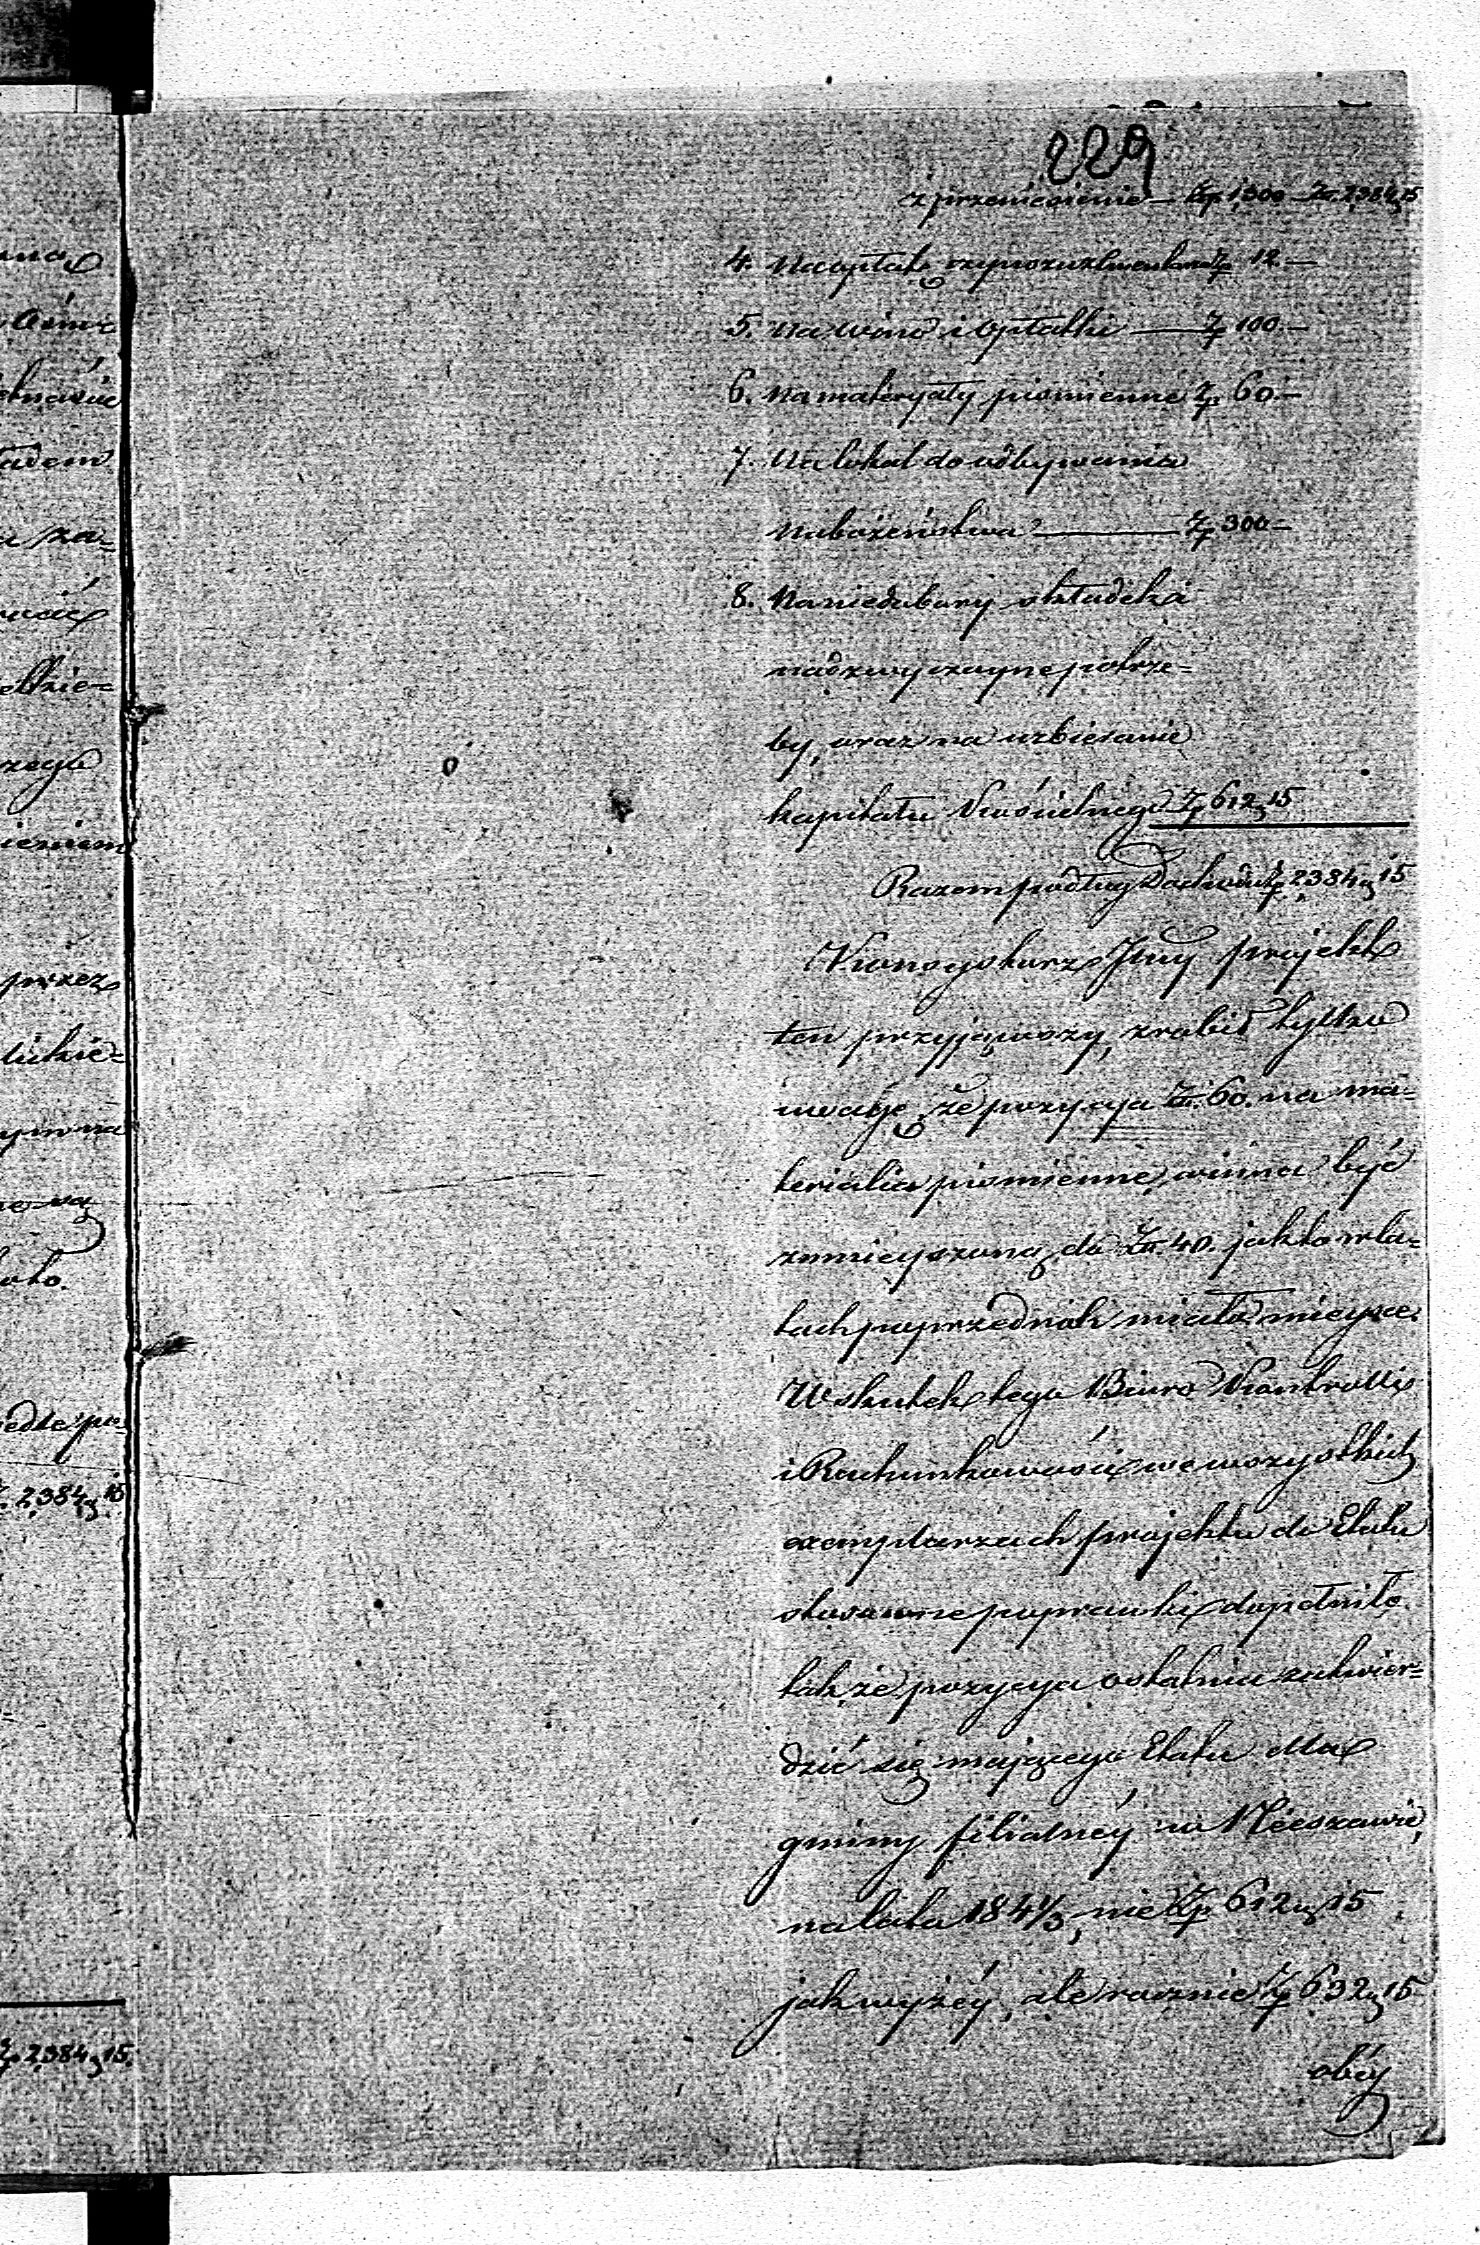 229
z przeniesienia — Złp. 1,300 — Zł. 2,384 g 15
4. Na opłatę czynszu Zp 12. —
5. Na wino i opłatki — Zp 100. —
6. Na materyały piśmienne Zp 60. —
7. Na lokal do odbywania
nabożeństwa — Zp 300 —
8. Na niedobory składek i
nadzwyczayne potrze=
by, oraz na uzbieranie
kapitału Kościelnego Zp 612 g 15
Razem podług Dochodu Zp 2,384 g 15
Konsystorz Jlny projekt
ten przyjąwszy, zrobił tylko
uwagę, że pozycya Zł. 60. na ma=
terialia piśmienne, winna być
zmnieyszoną do Zł. 40. jak to w la=
tach poprzednich miało mieysce.
W skutek tego Biuro Kontrolli
i Rachunkowości we wszystkich
exemplarzach projektu do Etatu
stosowne poprawki dopełniło
tak, że pozycya ostatnia zatwier=
dzić się mającego Etatu dla
gminy filialnéy w Nieszawie,
na lata 184 1/3, nie Złp 612 g 15
jak wyżéy, ale raczniе Zp 632 g 15
obéy
ną
tadem
a za=
rzego
ieniem
przez
ludzie=
oko.
edle po=
Zł. 2,384 g 15
Zp 2,384 g 15.